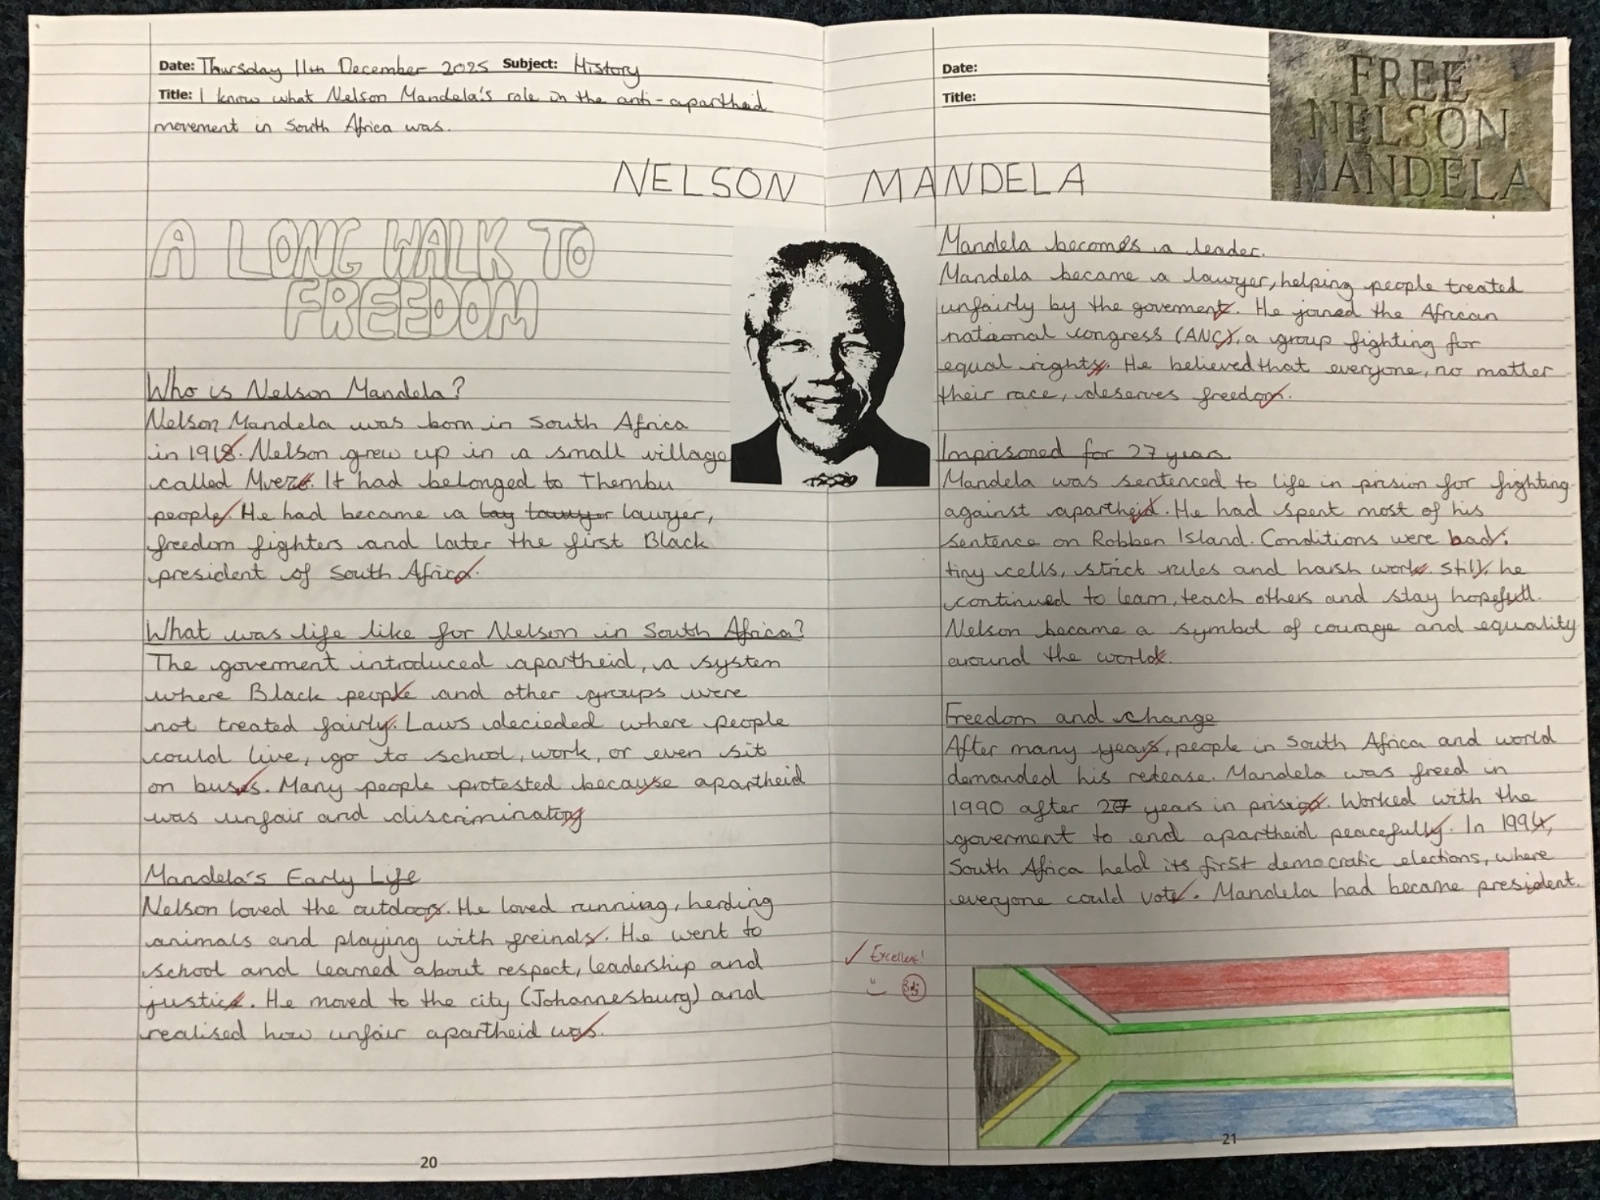 Date: Thursday 11th December 2025 Subject: History
Title: I know what Nelson Mandela's role in the anti-apartheid
movement in South Africa was.
NELSON MANDELA
A LONG WALK TO
FREEDOM
Who is Nelson Mandela?
Nelson Mandela was born in South Africa
in 1918. Nelson grew up in a small village
called Mvezo. It had belonged to Thembu
people. He had became a lawyer,
freedom fighters and later the first Black
president of South Africa.
What was life like for Nelson in South Africa?
The goverment introduced apartheid, a system
where Black people and other groups were
not treated fairly. Laws decieded where people
could live, go to school, work, or even sit
on buses. Many people protested because apartheid
was unfair and discriminating
Mandela's Early Life
Nelson loved the outdoors. He loved running, herding
animals and playing with freinds. He went to
school and learned about respect, leadership and
justice. He moved to the city (Johannesburg) and
realised how unfair apartheid was.
20
Date:
Title:
FREE
NELSON
MANDELA
Mandela becomes a leader.
Mandela became a lawyer, helping people treated
unfairly by the goverment. He joined the African
national congress (ANC), a group fighting for
equal rights. He believed that everyone, no matter
their race, deserves freedom.
Imprisoned for 27 years
Mandela was sentenced to life in prision for fighting
against apartheid. He had spent most of his
sentence on Robben Island. Conditions were bad:
tiny cells, strict rules and harsh work. Still, he
continued to learn, teach others and stay hopefull.
Nelson became a symbol of courage and equality
around the world.
Freedom and change
After many years, people in South Africa and world
demanded his release. Mandela was freed in
1990 after 27 years in prision. Worked with the
goverment to end apartheid peacefully. In 1994,
South Africa held its first democratic elections, where
everyone could vote. Mandela had became president.
Excellent!
21